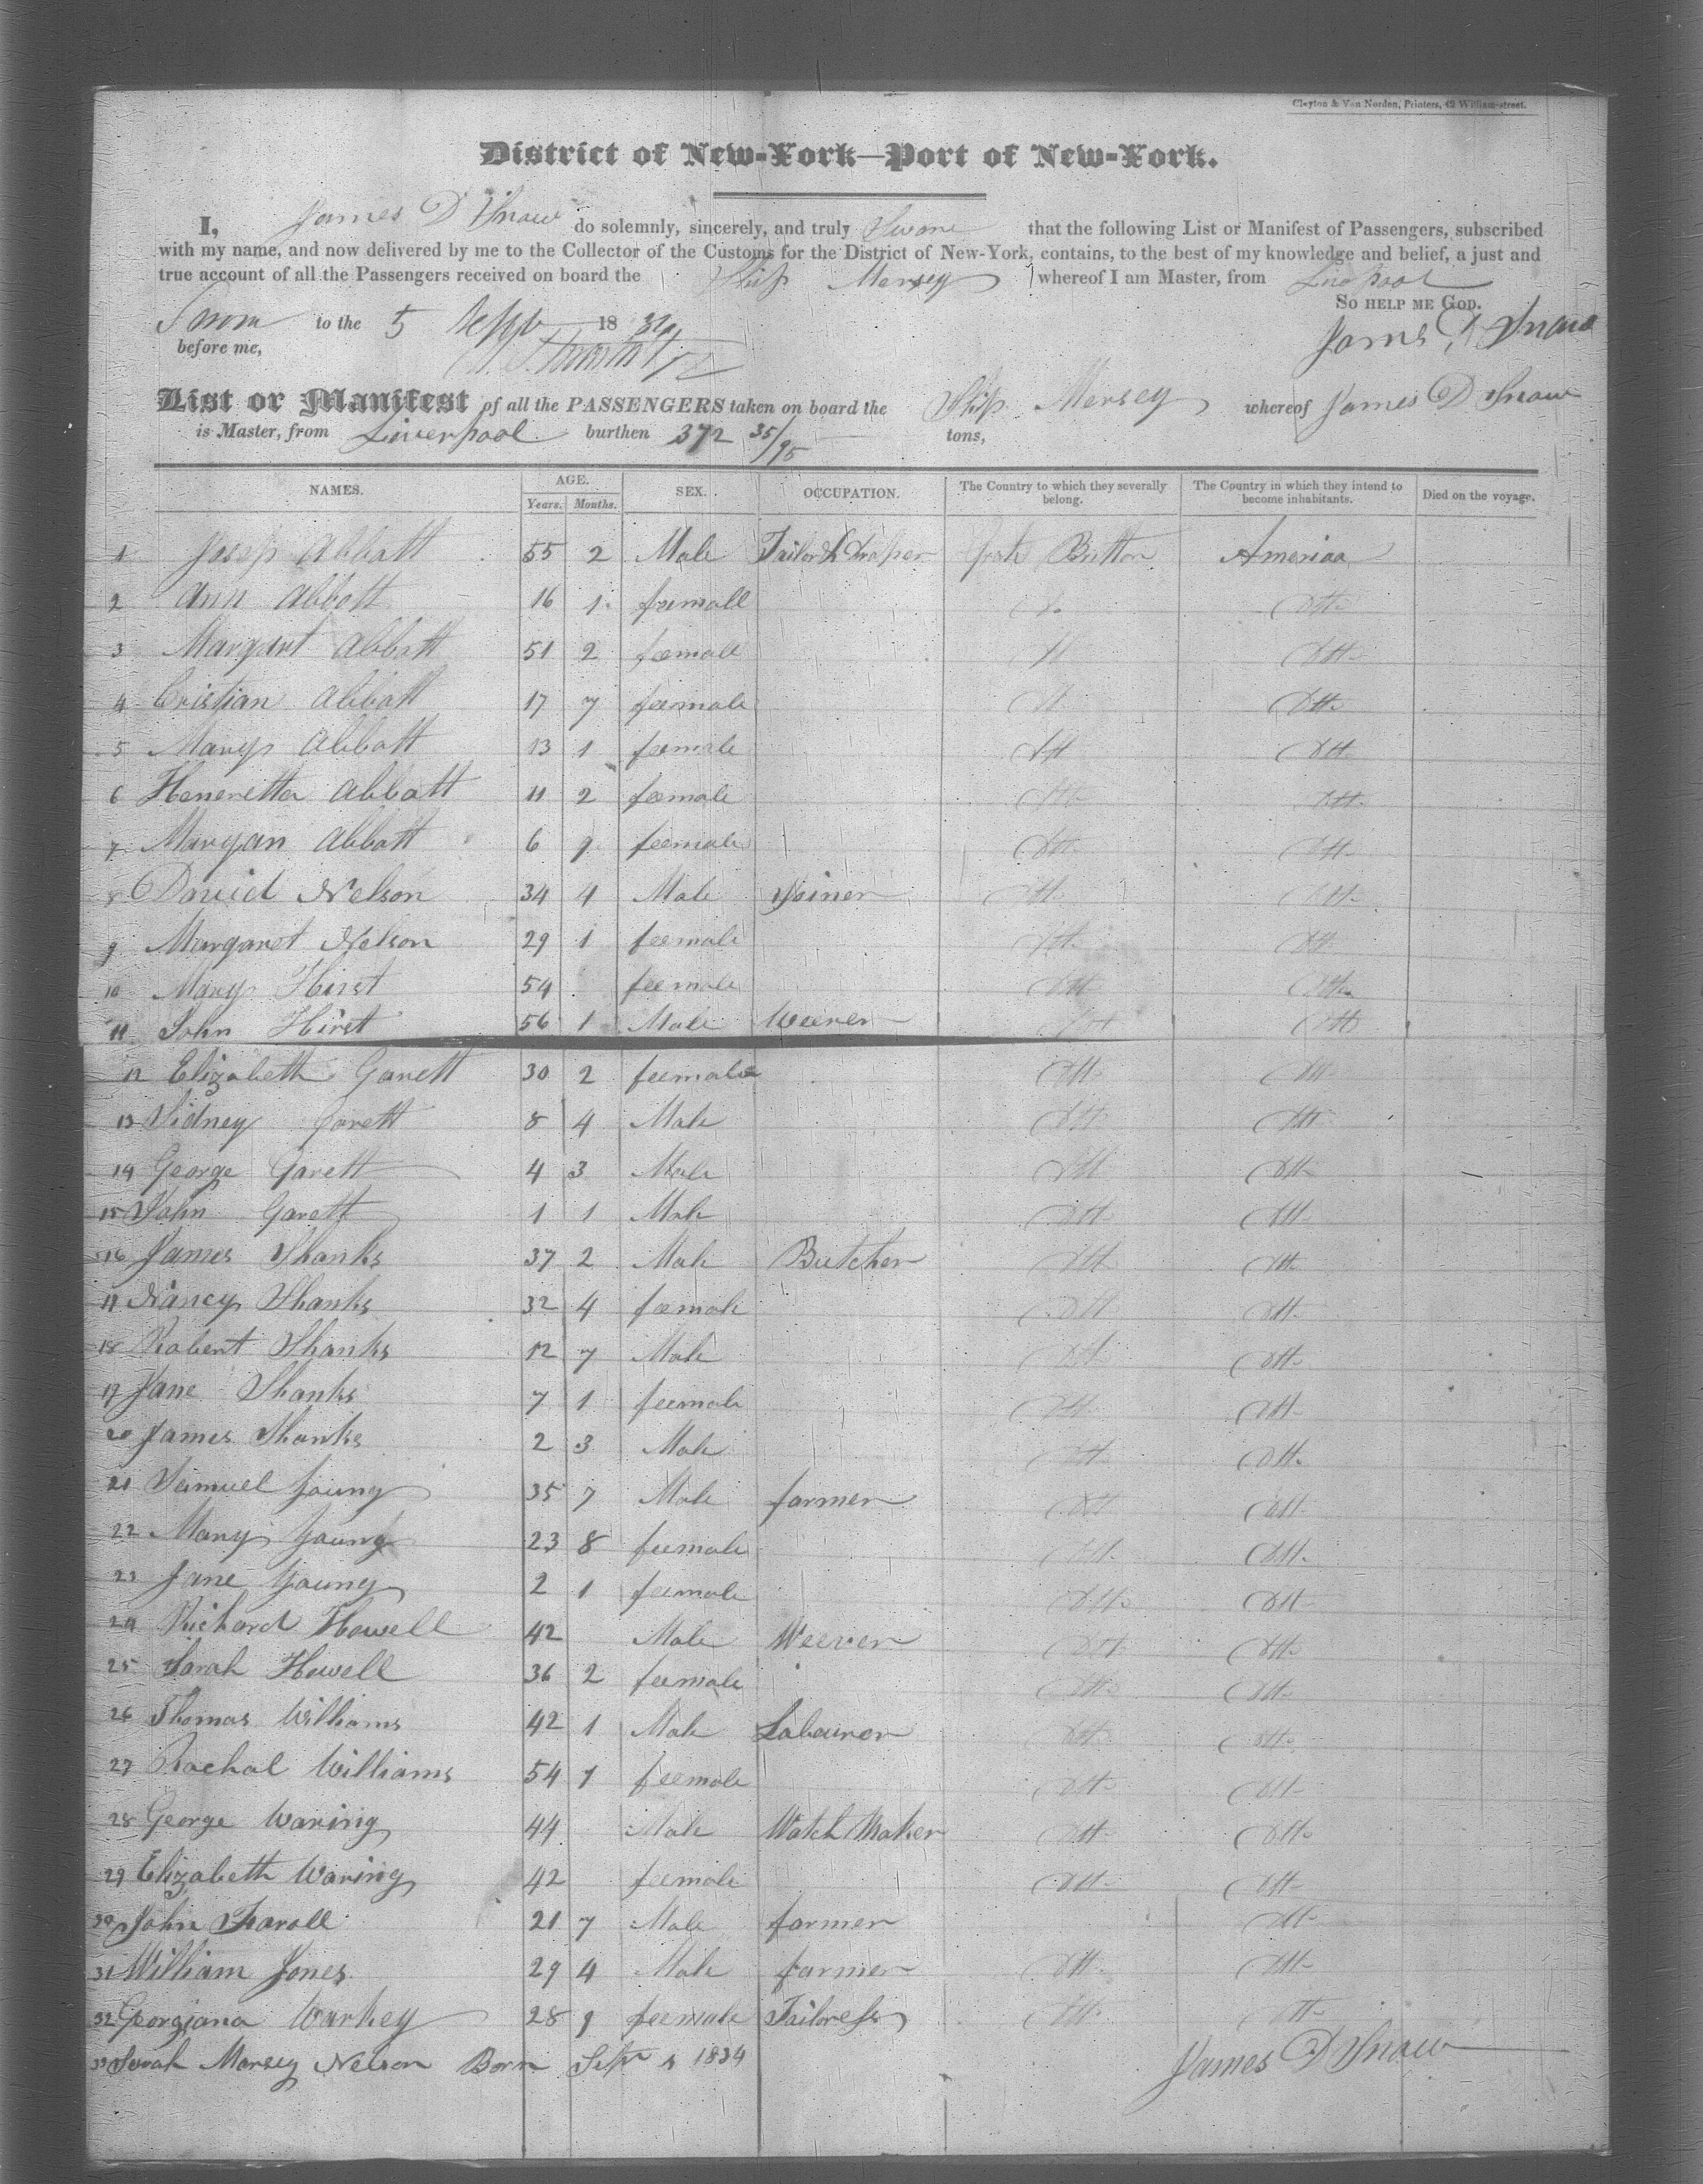 Clayton & Van Norden, Printers, 42 William-street.
District of New-York—Port of New-York.
I, James D Snow do solemnly, sincerely, and truly Swore that the following List or Manifest of Passengers, subscribed
with my name, and now delivered by me to the Collector of the Customs for the District of New-York, contains, to the best of my knowledge and belief, a just and
true account of all the Passengers received on board the Ship Mersey whereof I am Master, from Liverpool
So help me God.
Sworn to the 5 Sept 1834 James D Snow
before me,
List or Manifest of all the PASSENGERS taken on board the Ship Mersey whereof James D Snow
is Master, from Liverpool burthen 372 35/95 tons,
NAMES. AGE. Years. Months. SEX. OCCUPATION. The Country to which they severally belong. The Country in which they intend to become inhabitants. Died on the voyage.
1 Josep Abbott 55 2 Male Tailor & Draper Grate Britton America
2 Ann Abbott 16 1 feemall Do Dtt
3 Margart Abbott 51 2 feemall tt Dtt
4 Cristian Abbott 17 7 feemale tt Dtt
5 Mary Abbott 13 1 feemale Dtt Dtt
6 Heneretta Abbott 11 2 feemale Dtt Dtt
7 Maryan Abbott 6 9 feemale Dtt Dtt
8 David Nelson 34 4 Male Joiner Dtt Dtt
9 Margaret Nelson 29 1 feemale Dtt Dtt
10 Mary Hirst 54 feemale Dtt Dtt
11 John Hirst 56 1 Male Weever Dtt Dtt
12 Elizabeth Garett 30 2 feemale Dtt Dtt
13 Sidney Garett 8 4 Male Dtt Dtt
14 George Garett 4 3 Male Dtt Dtt
15 John Garett 1 1 Male Dtt Dtt
16 James Shanks 37 2 Male Butcher Dtt Dtt
17 Nancy Shanks 32 4 feemale Dtt Dtt
18 Robert Shanks 12 7 Male Dtt Dtt
19 Jane Shanks 7 1 feemale Dtt Dtt
20 James Shanks 2 3 Male Dtt Dtt
21 Samuel Young 35 7 Male farmer Dtt Dtt
22 Mary Young 23 8 feemale Dtt Dtt
23 Jane Young 2 1 feemale Dtt Dtt
24 Richard Howell 42 Male Weever Dtt Dtt
25 Sarah Howell 36 2 feemale Dtt Dtt
26 Thomas Williams 42 1 Male Labourer Dtt Dtt
27 Rachal Williams 54 7 feemale Dtt Dtt
28 George Waring 44 Male Watch Maker Dtt Dtt
29 Elizabeth Waring 42 feemale Dtt Dtt
30 John Farall 21 7 Male farmer Dtt
31 William Jones 29 4 Male farmer Dtt Dtt
32 Georgiana Warkey 28 9 feemale Tailoress Dtt Dtt
33 Sarah Marsey Nelson Born Sept 1834
James D Snow